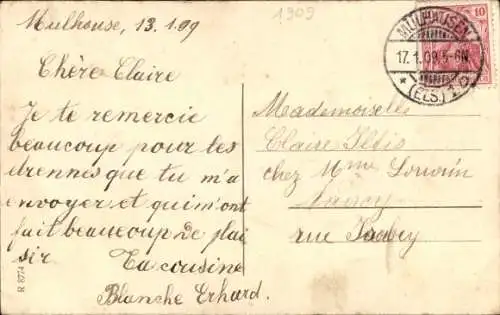 Mulhouse, 13.1.09
1909
Chère Claire
Je te remercie
beaucoup pour les
étrennes que tu m'a
envoyer et qui m'ont
fait beaucoup de plai
sir
Ta cousine
Blanche Erhard.
R 8774
10
MÜLHAUSEN
17.1.09.5-6N.
* (ELS.) 1 D
Mademoiselle
Claire Iltis
chez Mme
Nancy
rue